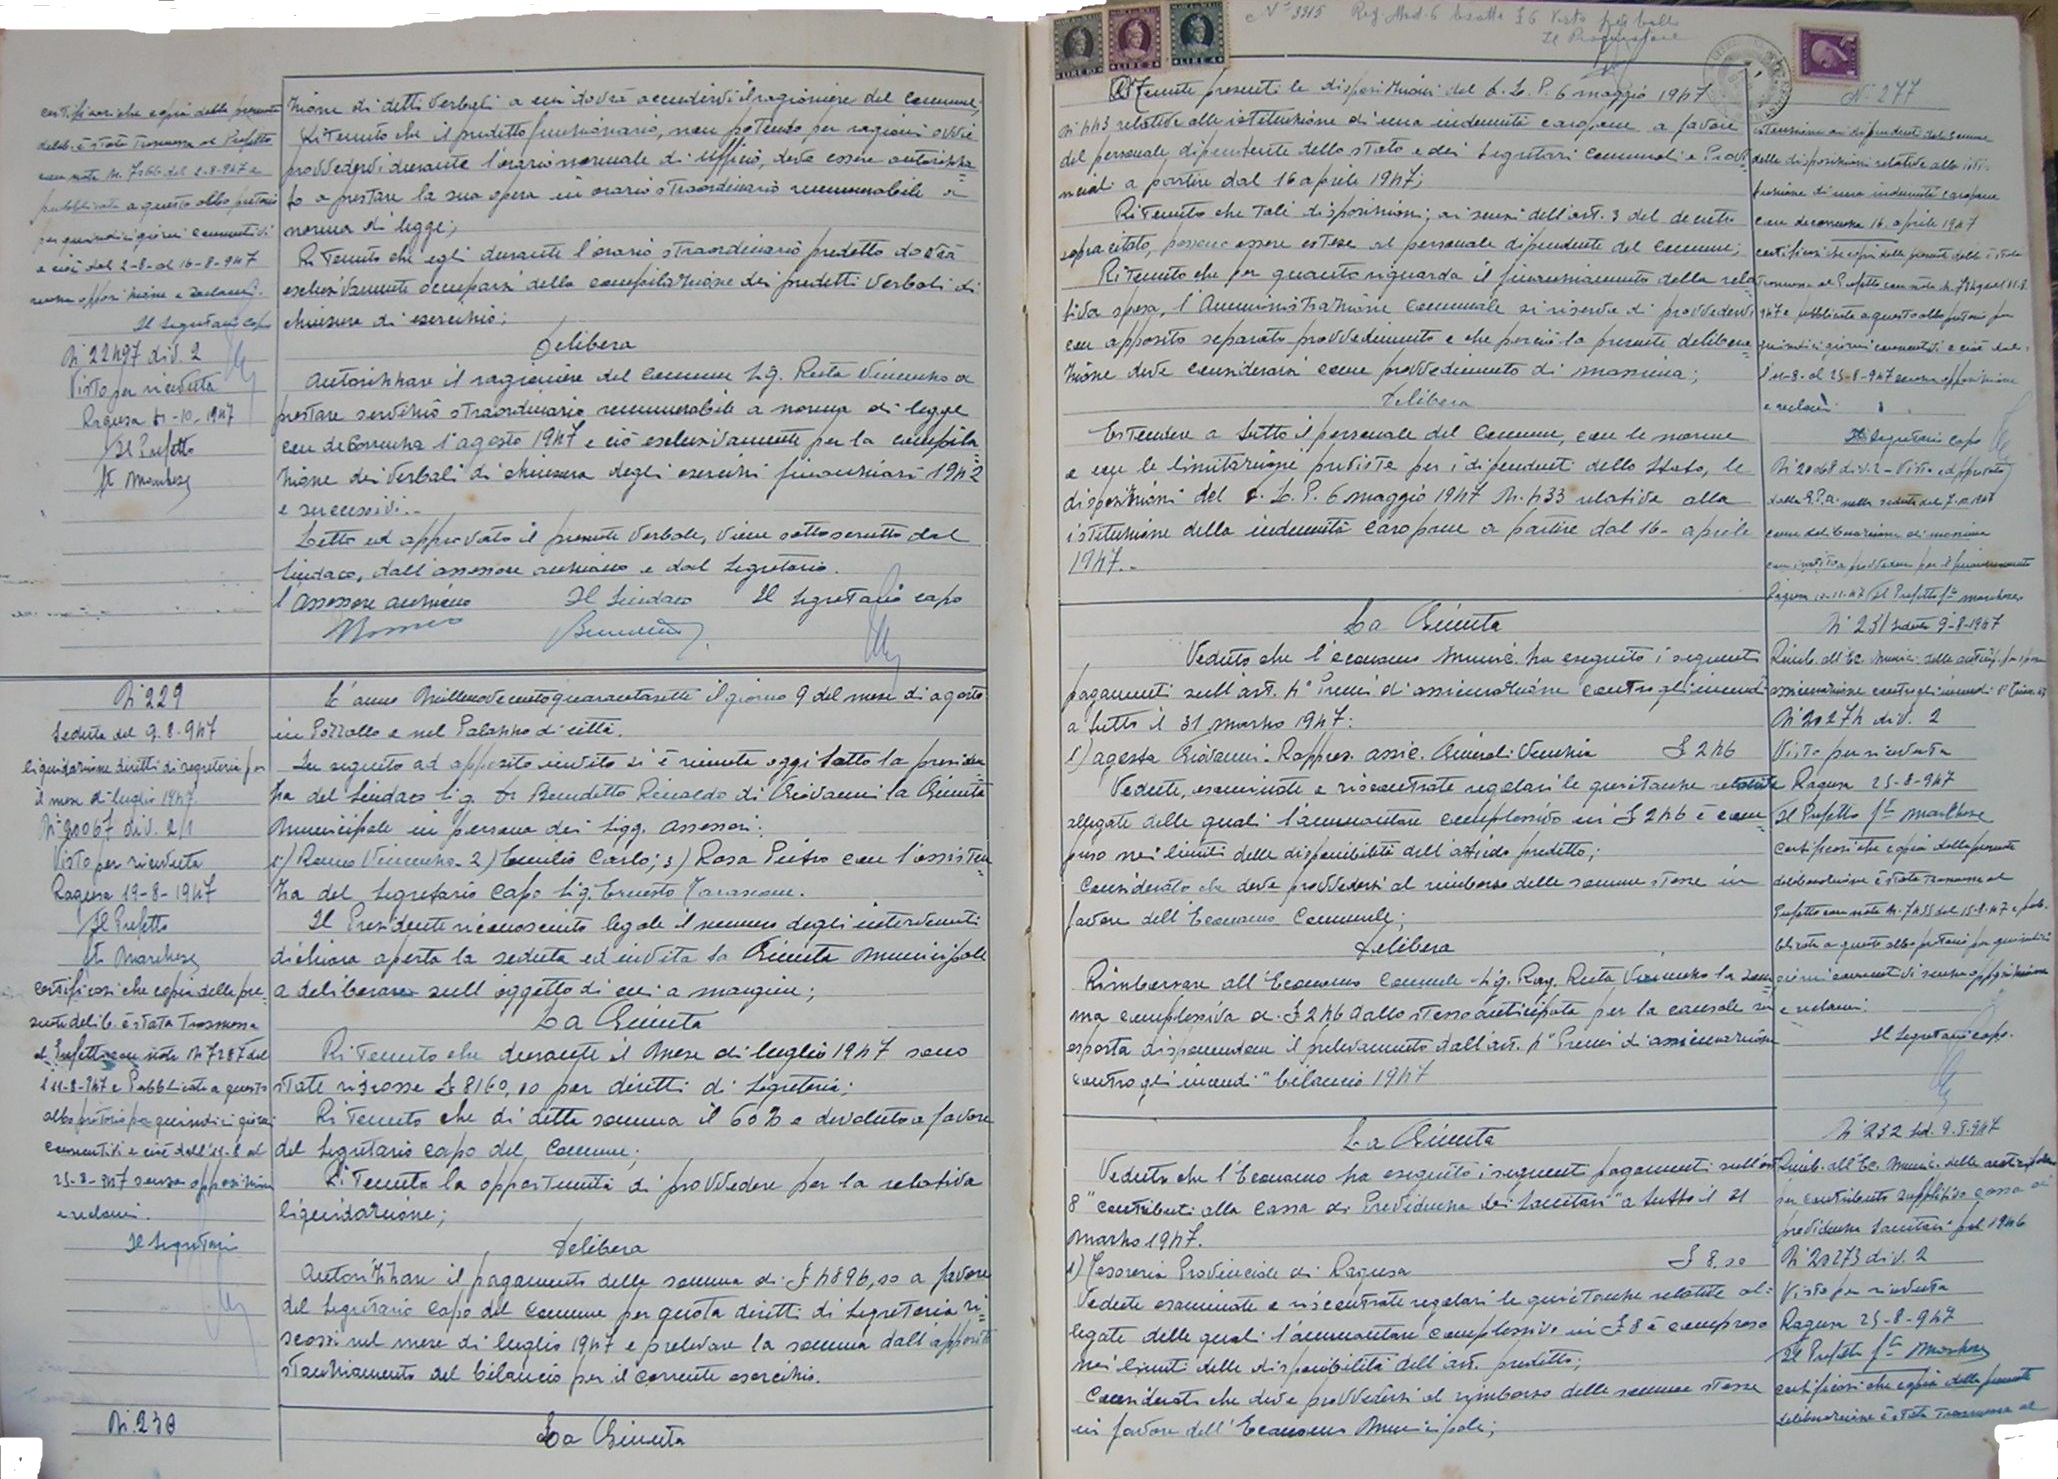 certificasi che copia della presente
delib. è stata trasmessa al Prefetto
con nota N. 7066 del 2-8-947 e
pubblicata a questo albo pretorio
per quindici giorni consecutivi
e cioè dal 2-8- al 16-8-947
senza opposizione e reclami.
Il Segretario Capo
N. 22497 div. 2
Visto per ricevuta
Ragusa -10-1947
Il Prefetto
Marchese
zione di detti verbali a cui dovrà accudirvi il ragioniere del Comune;
Ritenuto che il predetto funzionario, non potendo per ragioni ovvie
provvedervi durante l'orario normale di ufficio, deve essere autorizza=
to a prestare la sua opera in orario straordinario remunerabile a
norma di legge;
Ritenuto che egli durante l'orario straordinario predetto dovrà
esclusivamente occuparsi della compilazione dei predetti verbali di
chiusura di esercizio;
Delibera
Autorizzare il ragioniere del Comune Sig. Resta Vincenzo a
prestare servizio straordinario remunerabile a norma di legge
con decorrenza 1° agosto 1947 e ciò esclusivamente per la compila=
zione dei verbali di chiusura degli esercizi finanziari 1942
e successivi.-
Letto ed approvato il presente verbale, viene sottoscritto dal
Sindaco, dall'assessore anziano e dal Segretario.
l'Assessore anziano Il Sindaco Il Segretario capo
N. 229
Seduta del 9-8-947
liquidazione diritti di segreteria per
il mese di luglio 1947.
N. 20067 div. 2/1
Visto per ricevuta
Ragusa 19-8-1947
Il Prefetto
Marchese
certificasi che copia della pre=
sente delib. è stata trasmessa
al Prefetto con nota N. 7287 del
l'11-8-947 e Pubblicata a questo
albo pretorio per quindici giorni
consecutivi e cioè dall'11-8 al
25-8-947 senza opposizioni
e reclami.
Il Segretari
L'anno Millenovecentoquarantasette il giorno 9 del mese di agosto
in Pozzallo e nel Palazzo di città.
In seguito ad apposito invito si è riunita oggi sotto la presiden
za del Sindaco Sig. Dr Benedetto Rinaldo di Giovanni la Giunta
Municipale in persona dei Sigg. Assessori:
1°) Romeo Vincenzo 2) Emilio Carlo; 3) Rosa Pietro con l'assisten=
za del Segretario Capo Sig. Ernesto Tarascone.
Il Presidente riconosciuto legale il numero degli intervenuti
dichiara aperta la seduta ed invita la Giunta Municipale
a deliberare sull'oggetto di cui a margine;
La Giunta
Ritenuto che durante il mese di luglio 1947 sono
state riscosse £ 8160,10 per diritti di Segreteria;
Ritenuto che di detta somma il 60% e devoluto a favore
del Segretario capo del Comune;
Ritenuta la opportunità di provvedere per la relativa
liquidazione;
Delibera
Autorizzare il pagamento della somma di £ 4896,00 a favore
del Segretario Capo del Comune per quota diritti di Segreteria ri=
scossi nel mese di luglio 1947 e prelevare la somma dall'apposito
stanziamento del bilancio per il corrente esercizio.
N. 230
La Giunta
N° 3315 Reg. Mod. 6 Esatte £ 6 Visto per bollo
Il Procuratore
Ritenute presenti le disposizioni del D. L. P. 6 maggio 1947
N. 443 relative alla istituzione di una indennità caropane a favore
del personale dipendente dello Stato e dei Segretari Comunali e Provi=
nciali a partire dal 16 aprile 1947;
Ritenuto che tali disposizioni, ai sensi dell'art. 3 del decreto
sopracitato, possono essere estese al personale dipendente del Comune;
Ritenuto che per quanto riguarda il finanziamento della rela
tiva spesa, l'Amministrazione Comunale si riserva di provvedervi
con apposito separato provvedimento e che perciò la presente delibera=
zione deve considerarsi come provvedimento di massima;
Delibera
Estendere a tutto il personale del Comune, con le norme
e con le limitazioni previste per i dipendenti dello Stato, le
disposizioni del D. L. P. 6 maggio 1947 N. 433 relative alla
istituzione della indennità caropane a partire dal 16- aprile
1947.-
N. 277
estensione ai dipendenti del Comune
delle disposizioni relative alla isti-
tuzione di una indennità caropane
con decorrenza 16 aprile 1947
certificasi che copia della presente delib. è stata
trasmessa al Prefetto con nota N.
947 e pubblicata a questo albo pretorio per
quindici giorni consecutivi e cioè dal-
l'11-8- al 25-8-947 senza opposizione
e reclami.
Il Segretario capo
N. 20068 div. 2 - Visto ed approvato
dalla G.P.A. nella seduta del
come deliberazione di massima
con invito a provvedere per il finanziamento
Ragusa 12-11-47 Il Prefetto f.to Marchese
La Giunta
Veduto che l'economo Munic. ha eseguito i seguenti
pagamenti sull'art. 4° Premi di assicurazione contro gli incendi
a tutto il 31 marzo 1947:
1) Agosta Giovanni - Rappres. assic. Generali Venezia £ 246
Vedute, esaminate e riscontrate regolari le quietanze relative
allegate delle quali l'ammontare complessivo in £ 246 è com=
preso nei limiti delle disponibilità dell'articolo predetto;
Considerato che deve provvedersi al rimborso delle somme stesse in
favore dell'Economo Comunale;
Delibera
Rimborsare all'Economo Comunale Sig. Rag. Resta Vincenzo la som=
ma complessiva di £ 246 dallo stesso anticipata per la causale su
esposta disponendone il prelevamento dall'art. 4° "Premi di assicurazione
contro gli incendi" bilancio 1947
N. 231 Seduta 9-8-1947
Rimb. all'Ec. Munic. delle anticip. per spese
assicurazione contro gli incendi 1° Trim. 47
N. 20274 div. 2
Visto per ricevuta
Ragusa 25-8-947
Il Prefetto f.to Marchese
Certificasi che copia della presente
deliberazione è stata trasmessa al
Prefetto con nota N. 7455 del 15-8-47 e pub.
blicata a questo albo pretorio per quindici
giorni consecutivi senza opposizione
e reclami.
Il Segretario capo.
La Giunta
Veduto che l'Economo ha eseguito i seguenti pagamenti sull'art
8 "contributi alla Cassa di Previdenza dei Sanitari" a tutto il 31
marzo 1947.
1) Tesoreria Provinciale di Ragusa £ 8.00
Vedute esaminate e riscontrate regolari le quietanze relative al=
legate delle quali l'ammontare complessivo in £ 8 è compreso
nei limiti delle disponibilità dell'art. predetto;
Considerato che deve provvedersi al rimborso delle somme stesse
in favore dell'Economo Municipale;
N. 232 Sed. 9-8-947
Rimb. all'Ec. Munic. delle anticip.
per contributo suppletivo cassa di
previdenza Sanitari pel 1946
N. 20273 div. 2
Visto per ricevuta
Ragusa 25-8-947
Il Prefetto f.to Marchese
certificasi che copia della presente
deliberazione è stata trasmessa al